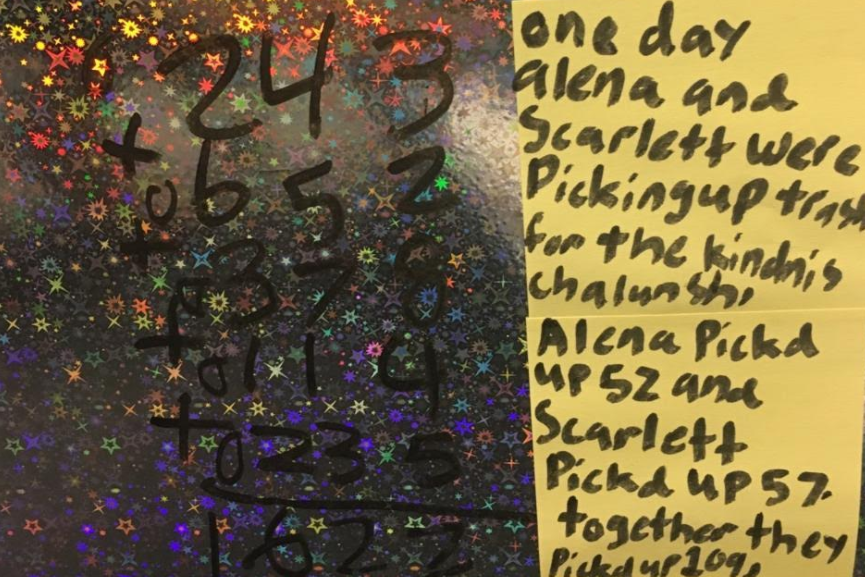 243
+
0652
+
0378
+
0114
+
0235
1622
one day
alena and
Scarlett were
Picking up trash
for the kindnis
chalunsh.
Alena Pickd
up 52 and
Scarlett
Pickd up 57.
together they
Pickd up 109.